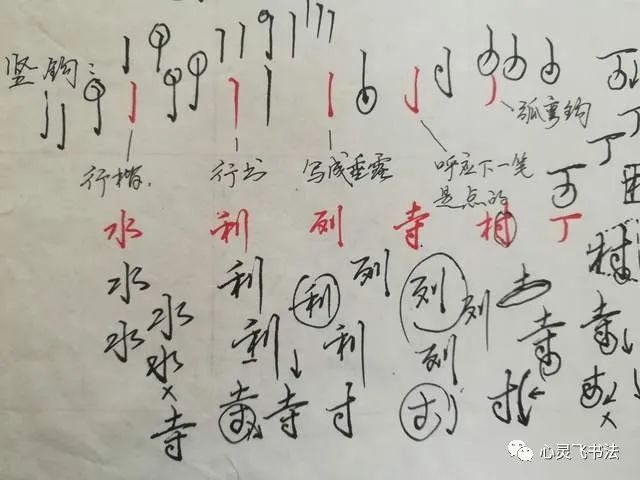 竖钩：
弧弯钩
行楷. 行书 写成垂露 呼应下一笔
是点的
水 利 列 寺 村 丁
水 利 利 列 列 列
水 水 利 利 列 寺
水 寺 寺 寸 寸
寺
心灵飞书法